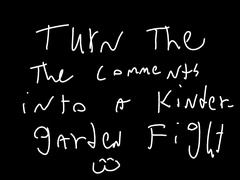 Turn The
The comments
into a Kinder-
garden Fight